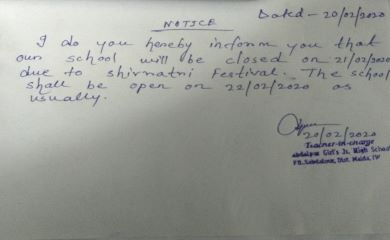 Dated - 20/02/2020
NOTICE
I do you hereby inform you that
our school will be closed on 21/02/2020
due to shivratri Festival. The school
shall be open on 22/02/2020 as
usually.
20/02/2020
Teacher-in-charge
Girl's Jr. High School
Dist. Malda,